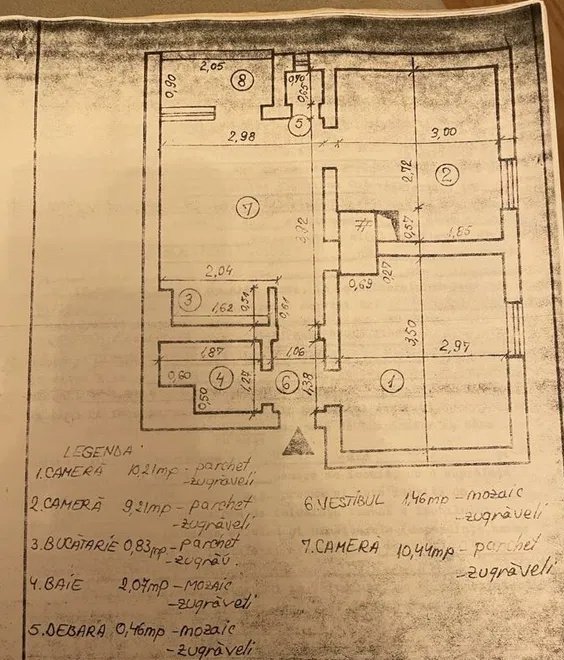 2,05
8
0,90
0,90
0,65
5
2,98
3,00
2,72
2
7
3,32
0,57
1,85
2,04
0,69
0,27
3
0,54
1,62
0,61
3,50
1,87
1,06
2,97
0,60
4
1,27
6
1,38
1
0,50
LEGENDA
1.CAMERĂ 10,21mp - parchet
-zugrăveli
2.CAMERĂ 9,21mp - parchet
-zugrăveli
3.BUCĂTĂRIE 0,83mp - parchet
-zugrăv.
4.BAIE 2,07mp - MOZAIC
-zugrăveli
5.DEBARA 0,46mp - mozaic
-zugrăveli
6.VESTIBUL 1,46mp - mozaic
-zugrăveli
7.CAMERĂ 10,44mp - parchet
-zugrăveli